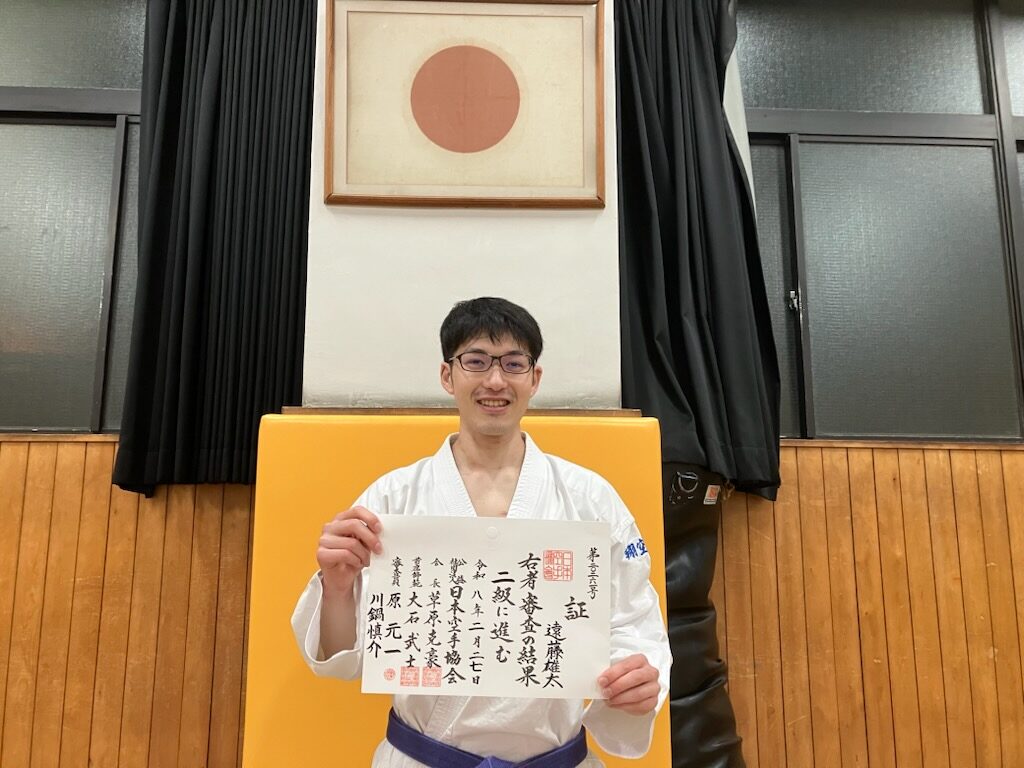 証
遠藤雄太
右者審査の結果
二級に進む
令和八年二月二七日
日本空手協会
会長 草原克豪
首席師範 大石武士
審査員 原元一
川鍋慎介